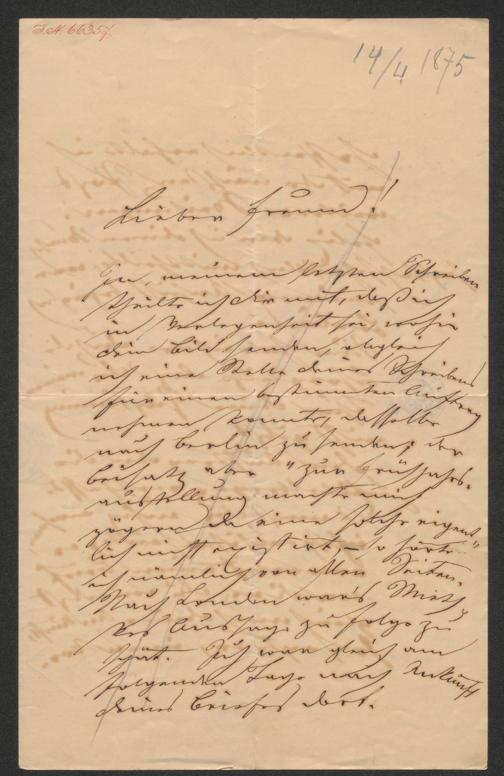 I.N. 66357
14/4 1875
Lieber Freund!
In meinem letzten Schreiben
theilte ich dir mit, daß ich
in Verlegenheit sei, wohin
dein Bild senden, obgleich
ich eine Stelle deines Schreibens
für einen bestimmten Auftrag
nehmen konnte, dasselbe
nach Berlin zu senden; der
Beisatz aber "zur Frühjahrs-
ausstellung machte mich
zögern da eine solche eigent"
lich nicht existirt, – so hörte
ich nämlich von allen Seiten.
Nach London war's
Aussage zu folge zu
spät. Ich war gleich am
folgenden Tage nach Ankunft
deines Briefes dort.